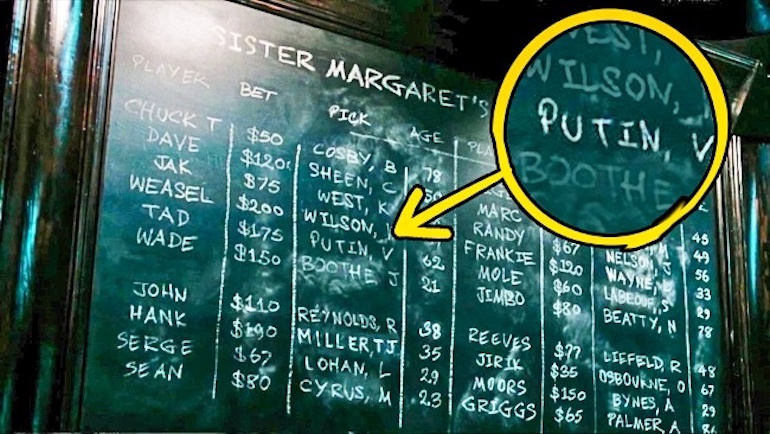 SISTER MARGARET'S
PLAYER BET PICK AGE
CHUCK T $50 COSBY, B 78
DAVE $120 SHEEN, C
JAK $75 WEST, K
WEASEL $200 WILSON, MARC 45
TAD $175 PUTIN, V 62 RANDY $67 NELSON, J 49
WADE $150 BOOTHE J 21 FRANKIE $120 WAYNE, L 56
MOLE $60 LABEOUF, S 33
JIMBO $80 BEATTY, N 29
78
JOHN $110 REYNOLDS, R 38 REEVES $77 LIEFELD, R 48
HANK $190 MILLER, TJ 35 JIRIK $35 OSBOURNE, O 67
SERGE $67 LOHAN, L 29 MOORS $150 BYNES, A 29
SEAN $80 CYRUS, M 23 GRIGGS $65 PALMER A
WEST,
WILSON,
PUTIN, V
BOOTHE